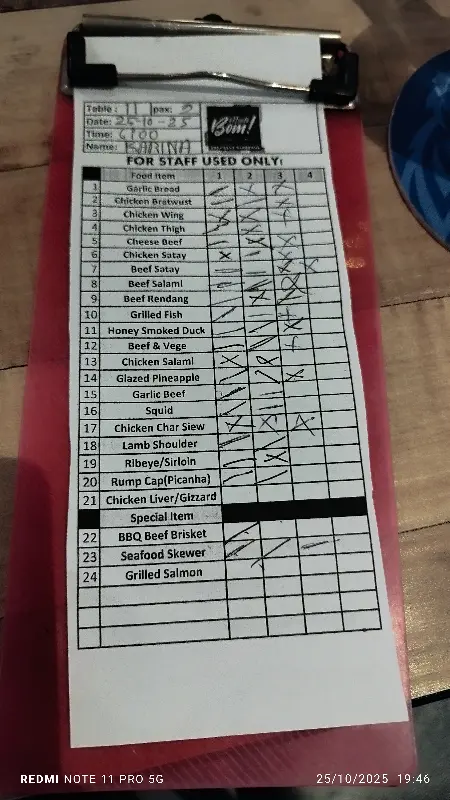 Table: 11 pax: 2
Date: 25-10-25
Time: 6100
Name: KARINA
Bom!
FOR STAFF USED ONLY:
Food Item 1 2 3 4
1 Garlic Bread
2 Chicken Bratwust
3 Chicken Wing
4 Chicken Thigh
5 Cheese Beef
6 Chicken Satay
7 Beef Satay
8 Beef Salami
9 Beef Rendang
10 Grilled Fish
11 Honey Smoked Duck
12 Beef & Vege
13 Chicken Salami
14 Glazed Pineapple
15 Garlic Beef
16 Squid
17 Chicken Char Siew
18 Lamb Shoulder
19 Ribeye/Sirloin
20 Rump Cap(Picanha)
21 Chicken Liver/Gizzard
Special Item
22 BBQ Beef Brisket
23 Seafood Skewer
24 Grilled Salmon
REDMI NOTE 11 PRO 5G
25/10/2025 19:46